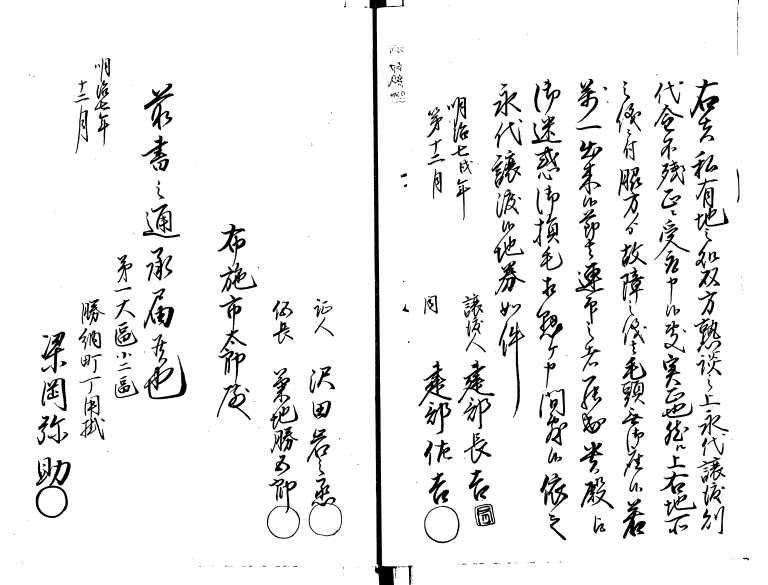 右者私有地之処双方熟談之上永代譲渡則
代金不残正ニ受取申候処実正也然ル上右地所
之儀ニ付脇方ゟ故障之儀者毛頭無御座候若
万一出来候節者連印之者罷出貴殿江
御迷惑御損毛相懸ケ申間敷候依之
永代譲渡候地券如件
明治七戌年
第十二月
譲渡人 建部長吉
同 建部佐吉
証人 沢田岩之丞
伍長 菊地勝五郎
布施市太郎殿
前書之通承届候也
明治七年
十二月
第一大區小二區
勝納町丁用掛
梁岡弥助